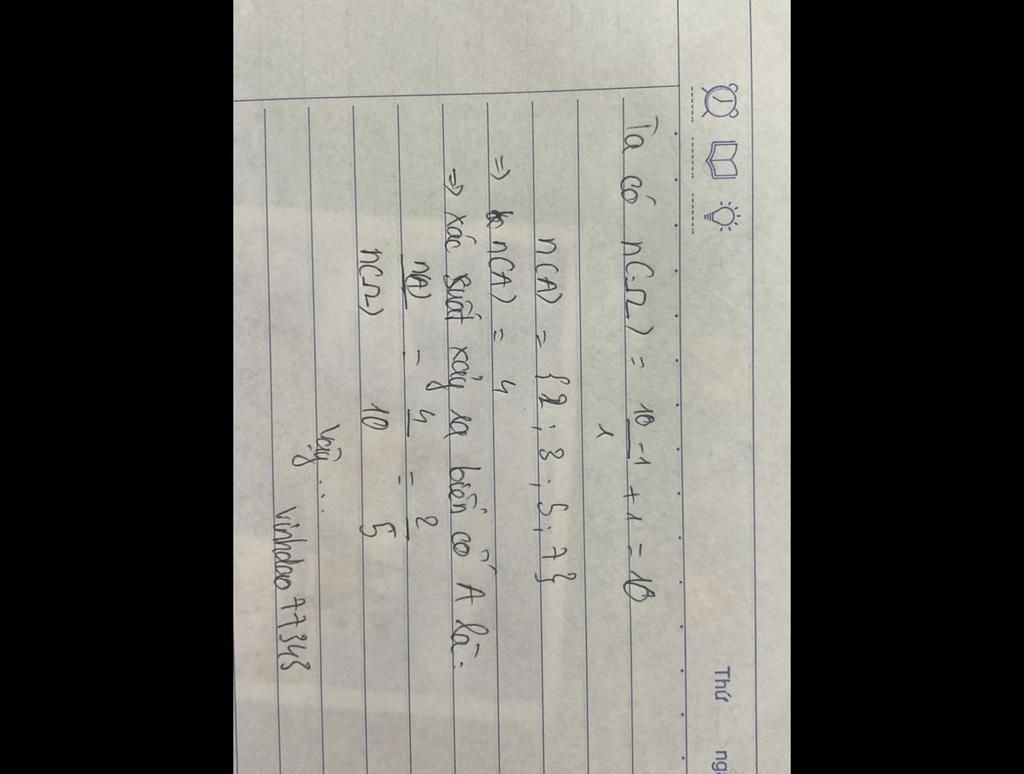 Thứ
ngà
Ta có n(Ω) = 10-1/1 + 1 = 10
n(A) = {2; 3; 5; 7}
=> n(A) = 4
=> xác suất xảy ra biến cố A là:
n(A)/n(Ω) = 4/10 = 2/5
Vậy...
vinhdao77343